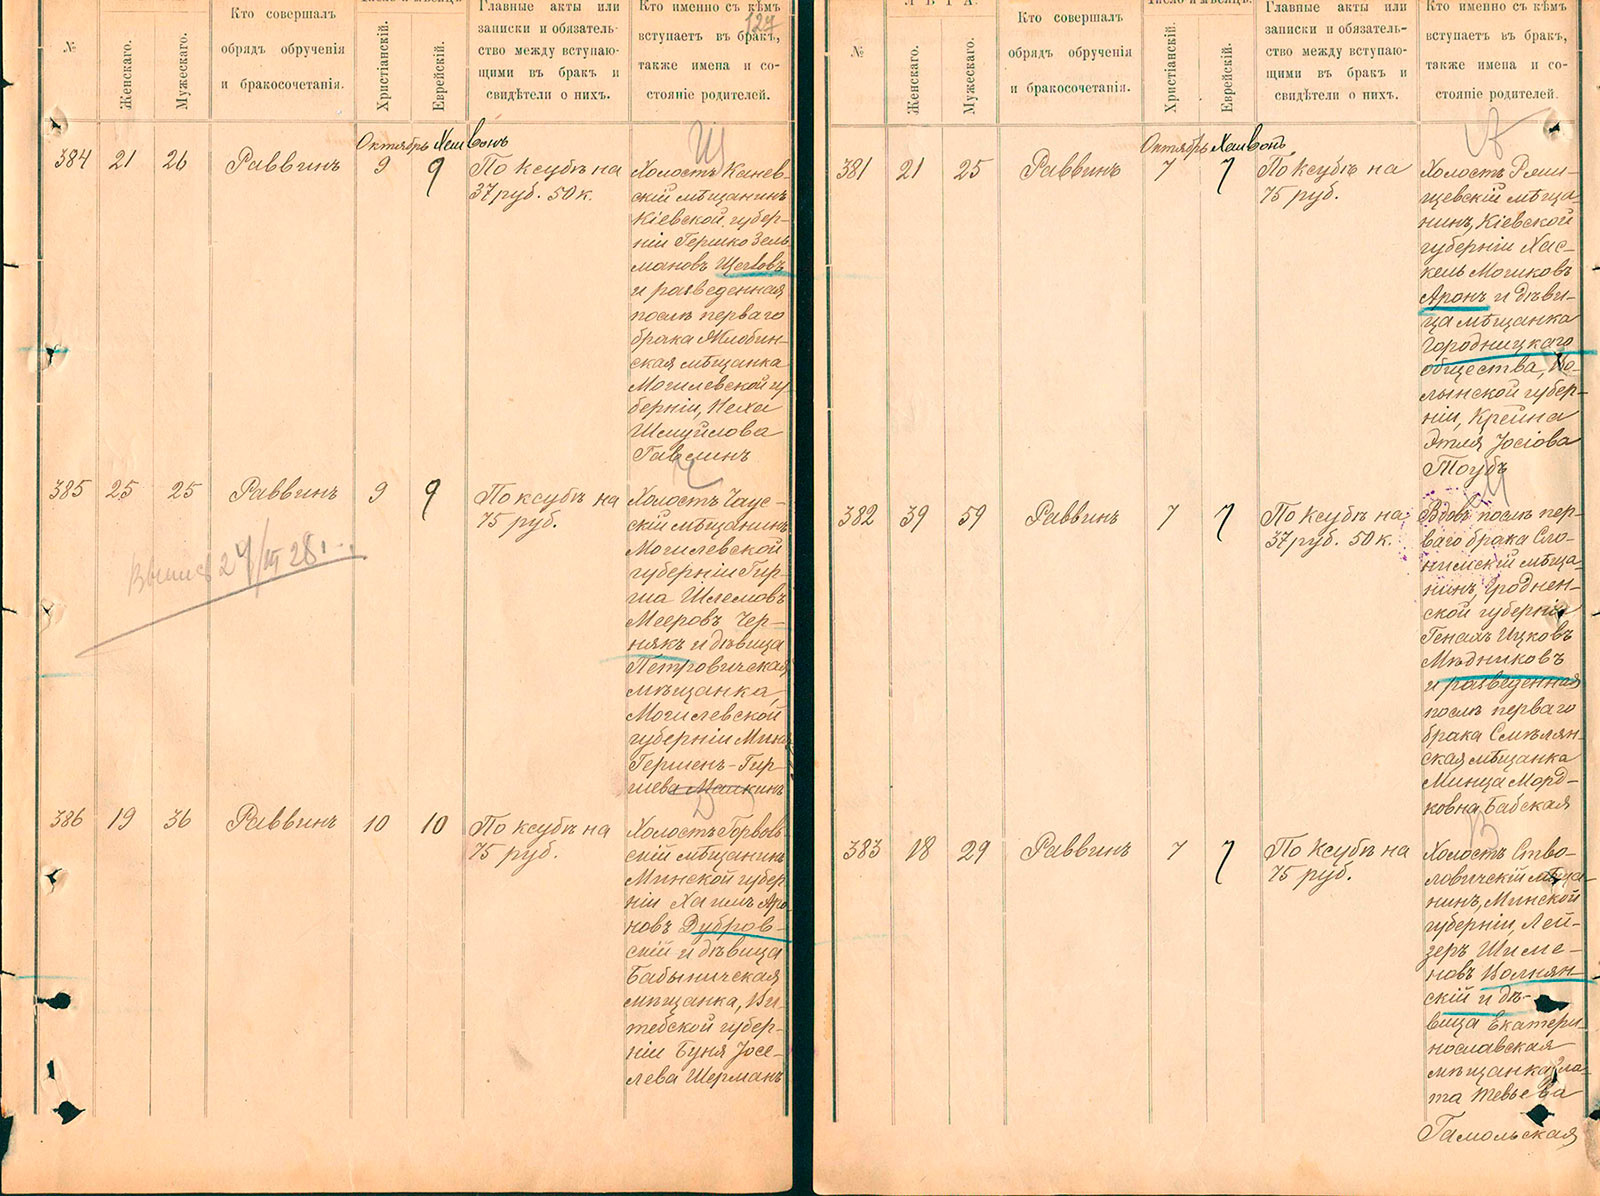 124
№
Женскаго.
Мужескаго.
Кто совершалъ
обрядъ обрученія
и бракосочетанія.
Христіанскій.
Еврейскій.
Главные акты или
записки и обязатель-
ство между вступаю-
щими въ бракъ и
свидѣтели о нихъ.
Кто именно съ кѣмъ
вступаетъ въ бракъ,
также имена и со-
стояніе родителей.
Октябрь Хешвонъ
384 21 26 Раввинъ 9 9
По ксубѣ на
37 руб. 50 к.
Щ
Холостъ Канев-
скій мѣщанинъ
Кіевской губер-
ніи Гершко Зель-
мановъ Щегловъ
и разведенная
послѣ перваго
брака Жлобин-
ская мѣщанка
Могилевской гу-
берніи, Неха
Шмуйлова
Гавлинъ
385 25 25 Раввинъ 9 9
По ксубѣ на
75 руб.
Ч
Холостъ Чаус-
скій мѣщанинъ
Могилевской
губерніи Гир-
ша Шлемовъ
Мееровъ Чер-
някъ и дѣвица
Петровичская
мѣщанка,
Могилевской
губерніи Мина
Гершен-Гир-
шева Манкинъ
27/III 28 г.
386 19 36 Раввинъ 10 10
По ксубѣ на
75 руб.
Д
Холостъ Горволь-
скій мѣщанинъ
Минской губер-
ніи Хаимъ Аро-
новъ Дубров-
скій и дѣвица
Бабыничская
мѣщанка, Ви-
тебской губер-
ніи Буня Іосе-
лева Шерманъ
ЛѢТА.
Число и мѣсяцъ.
№
Женскаго.
Мужескаго.
Кто совершалъ
обрядъ обрученія
и бракосочетанія.
Христіанскій.
Еврейскій.
Главные акты или
записки и обязатель-
ство между вступаю-
щими въ бракъ и
свидѣтели о нихъ.
Кто именно съ кѣмъ
вступаетъ въ бракъ,
также имена и со-
стояніе родителей.
Октябрь Хешвонъ
381 21 25 Раввинъ 7 7
По ксубѣ на
75 руб.
А
Холостъ Ржи-
щевскій мѣща-
нинъ, Кіевской
губерніи Хас-
кель Мошковъ
Аронъ и дѣви-
ца мѣщанка
Городницкаго
общества, Во-
лынской губер-
ніи, Крейна
Этля Іосіова
Тоубъ
382 39 59 Раввинъ 7 7
По ксубѣ на
37 руб. 50 к.
М
Вдовъ послѣ пер-
ваго брака Сло-
нимскій мѣща-
нинъ, Гроднен-
ской губерніи
Генахъ Ицковъ
Мѣдниковъ
и разведенная
послѣ перваго
брака Смѣлян-
ская мѣщанка
Минца Морд-
ковна Бабская
383 18 29 Раввинъ 7 7
По ксубѣ на
75 руб.
В
Холостъ Ство-
ловичскій мѣща-
нинъ, Минской
губерніи, Лей-
зеръ Шиме-
новъ Волнян-
скій и дѣ-
вица Екатери-
нославская
мѣщанка Зла-
та Тевьева
Гамольская